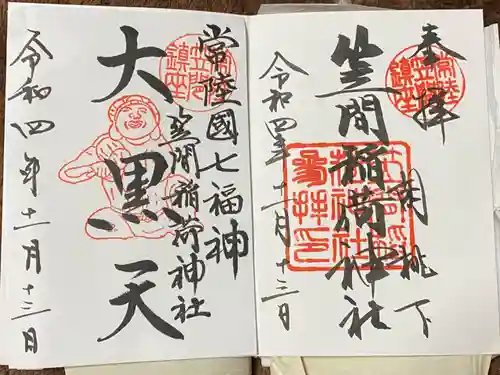 奉拝
関桃下
笠間稲荷神社
令和四年十一月十三日
常陸國七福神
笠間稲荷神社
大黒天
令和四年十一月十三日
常陸
笠間
鎮座
常陸
笠間
鎮座